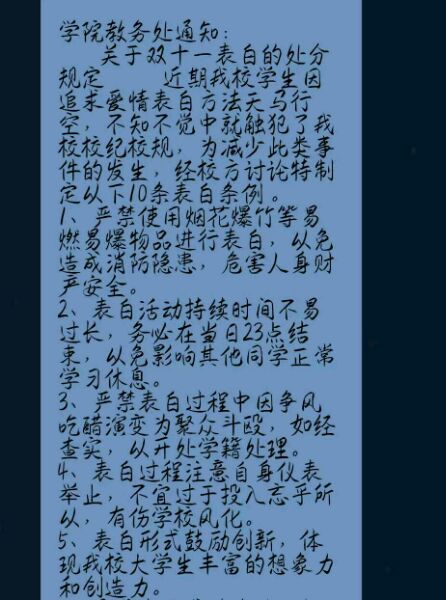 学院教务处通知：
关于双十一表白的处分
规定 近期我校学生因
追求爱情表白方法天马行
空，不知不觉中就触犯了我
校校纪校规，为减少此类事
件的发生，经校方讨论特制
定以下10条表白条例。
1、严禁使用烟花爆竹等易
燃易爆物品进行表白，以免
造成消防隐患，危害人身财
产安全。
2、表白活动持续时间不易
过长，务必在当日23点结
束，以免影响其他同学正常
学习休息。
3、严禁表白过程中因争风
吃醋演变为聚众斗殴，如经
查实，以开处学籍处理。
4、表白过程注意自身仪表
举止，不宜过于投入忘乎所
以，有伤学校风化。
5、表白形式鼓励创新，体
现我校大学生丰富的想象力
和创造力。